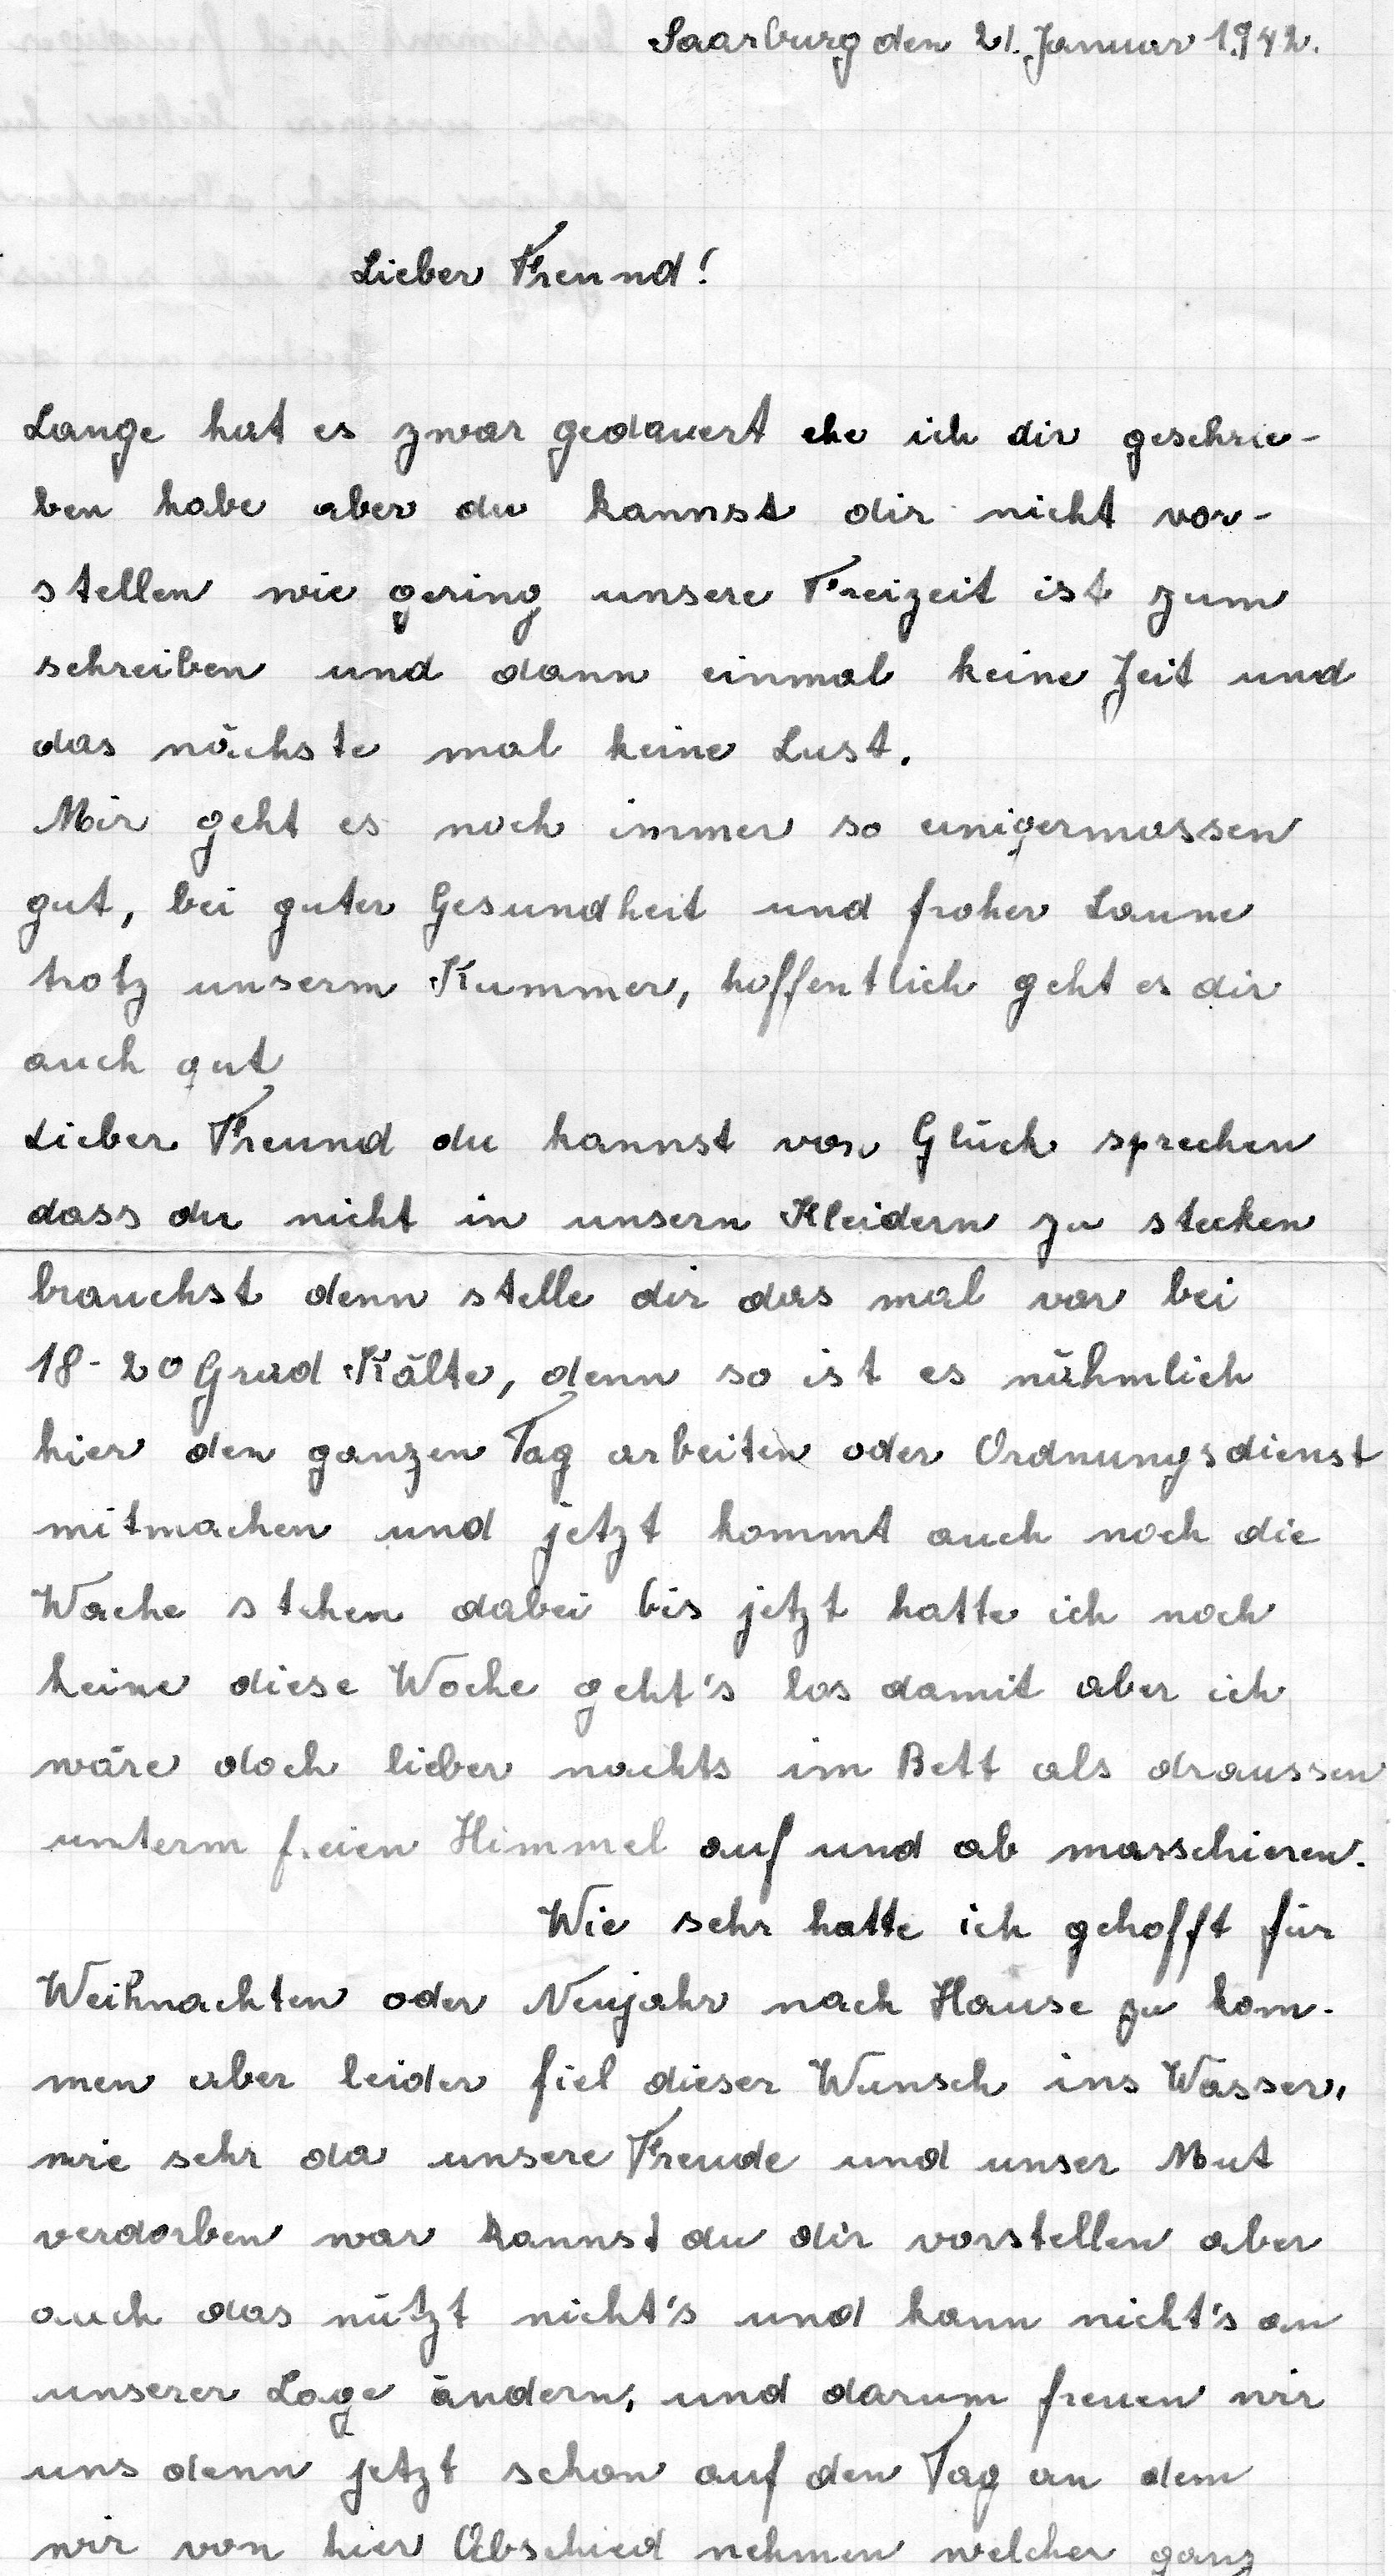 Saarburg den 21. Januar 1942.
Lieber Freund!
Lange hat es zwar gedauert ehe ich dir geschrie-
ben habe aber du kannst dir nicht vor-
stellen wie gering unsere Freizeit ist zum
schreiben und dann einmal keine Zeit und
das nächste mal keine Lust.
Mir geht es noch immer so einigermassen
gut, bei guter Gesundheit und froher Laune
trotz unserm Kummer, hoffentlich geht es dir
auch gut
Lieber Freund du kannst von Glück sprechen
dass du nicht in unsern Kleidern zu stecken
brauchst denn stelle dir das mal vor bei
18-20 Grad Kälte, denn so ist es nähmlich
hier den ganzen Tag arbeiten oder Ordnungsdienst
mitmachen und jetzt kommt auch noch die
Wache stehen dabei bis jetzt hatte ich noch
keine diese Woche geht's los damit aber ich
wäre doch lieber nachts im Bett als draussen
unterm freien Himmel auf und ab masschieren.
Wie sehr hatte ich gehofft für
Weihnachten oder Neujahr nach Hause zu kom-
men aber leider fiel dieser Wunsch ins Wasser,
wie sehr da unsere Freude und unser Mut
verdorben war kannst du dir vorstellen aber
auch das nützt nicht's und kann nicht's an
unserer Lage ändern, und darum freuen wir
uns denn jetzt schon auf den Tag an dem
wir von hier Abschied nehmen welcher ganz